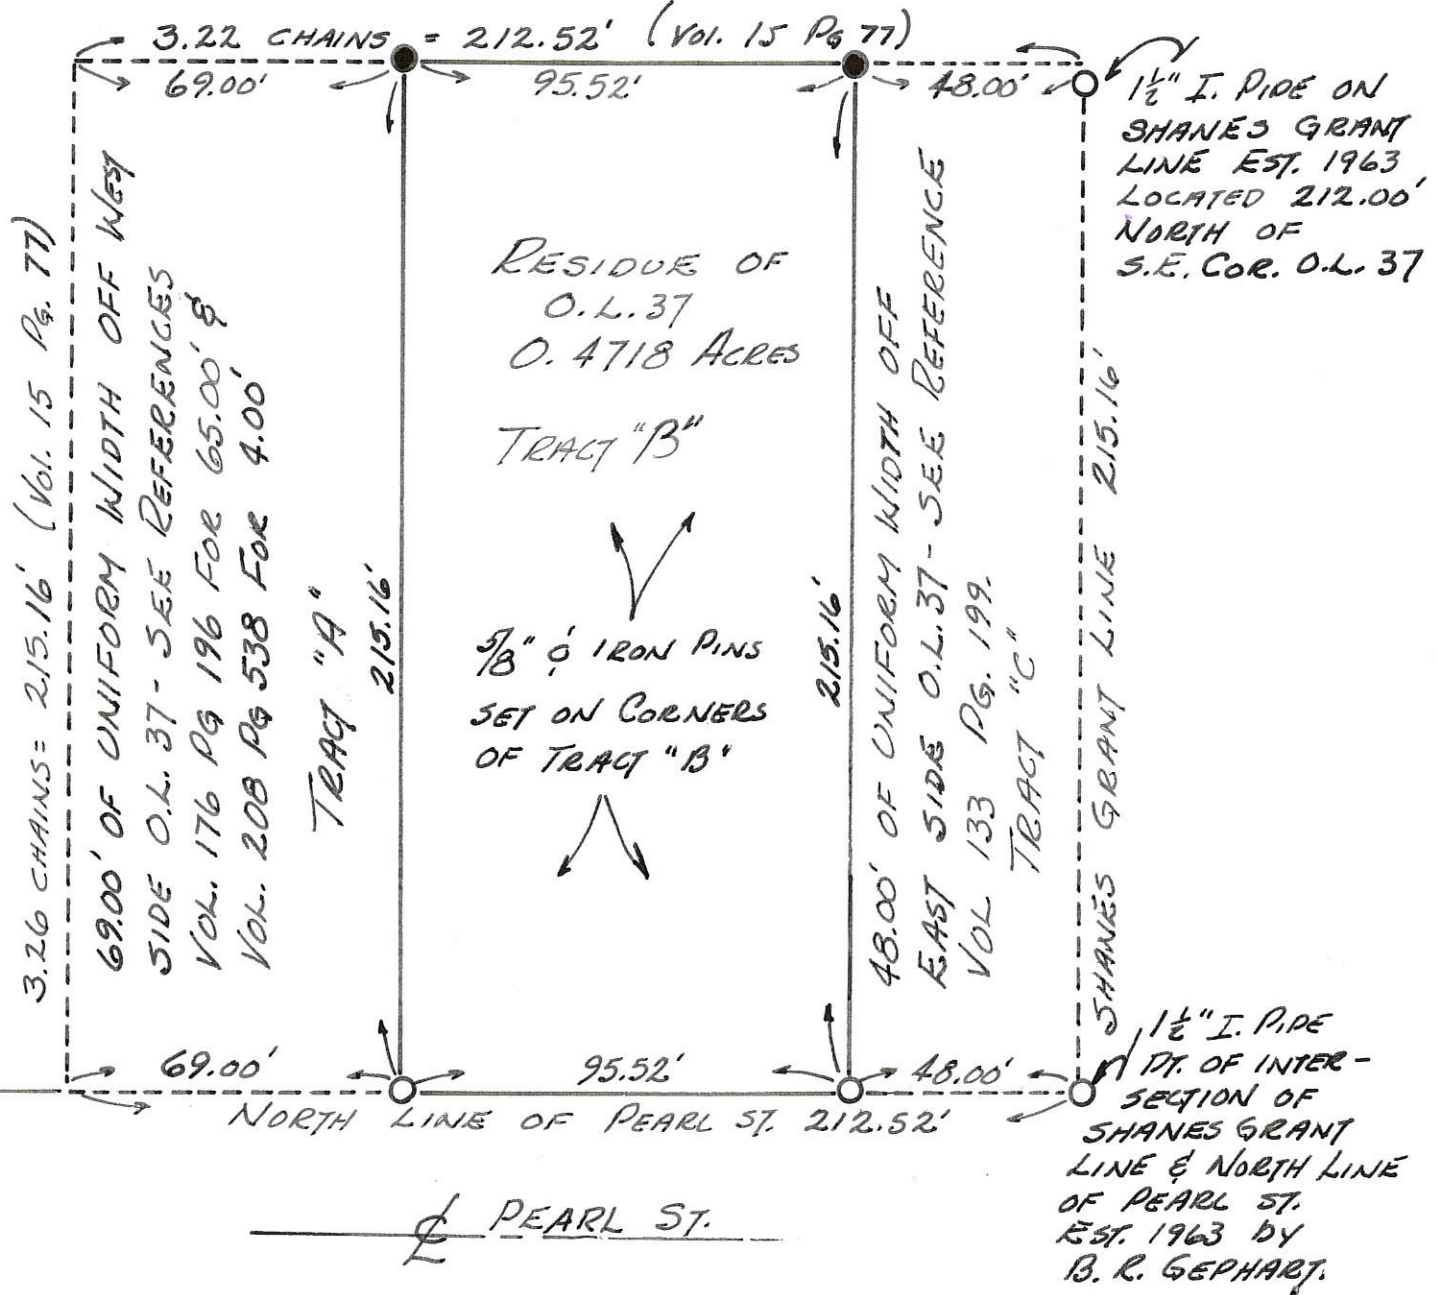 3.22 CHAINS = 212.52' (Vol. 15 PG 77)
69.00'
95.52'
48.00'
1½" I. PIPE ON
SHANES GRANT
LINE EST. 1963
LOCATED 212.00'
NORTH OF
S.E. COR. O.L. 37
3.26 CHAINS = 215.16' (Vol. 15 PG. 77)
69.00' OF UNIFORM WIDTH OFF WEST
SIDE O.L. 37 - SEE REFERENCES
VOL. 176 PG 196 FOR 65.00' &
VOL. 208 PG 538 FOR 4.00'
TRACT "A"
215.16'
RESIDUE OF
O.L. 37
0.4718 ACRES
TRACT "B"
5/8" ϕ IRON PINS
SET ON CORNERS
OF TRACT "B"
215.16'
48.00' OF UNIFORM WIDTH OFF
EAST SIDE O.L. 37 - SEE REFERENCE
VOL 133 PG. 199.
TRACT "C"
SHANES GRANT LINE 215.16'
69.00'
95.52'
48.00'
NORTH LINE OF PEARL ST. 212.52'
1½" I. PIPE
PT. OF INTER-
SECTION OF
SHANES GRANT
LINE & NORTH LINE
OF PEARL ST.
EST. 1963 BY
B. R. GEPHART.
℄ PEARL ST.